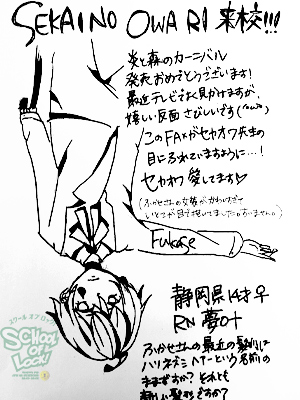 SEKAI NO OWARI 来校!!!
炎と森のカーニバル
発売おめでとうございます!
最近テレビでよく見かけますが、
嬉しい反面 さびしいです(´・ω・`)
このFAXがセカオワ先生の
目にふれていますように…!
セカオワ愛してます♡
(ふかせさんの女装がかわいすぎて
いとこが目で描いてました。すいません。)
Fukase
静岡県 14才 ♀
RN 夢叶
ふかせさんの最近の髪形は
ハリネズミヘアーという名前の
ままですか? それとも
新しい髪形ですか?
スクール オブ ロック!
SCHOOL OF LOCK!